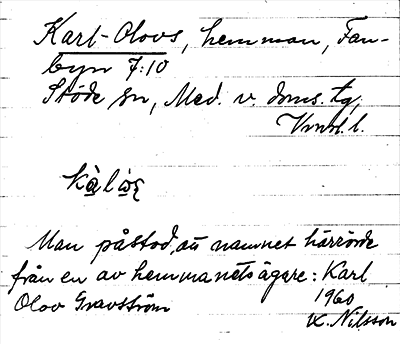 Karl-Olovs, hemman, Fan-
byn 7:10
Stöde sn, Med. v. doms. tg,
Vnrl. l.
Man påstod, att namnet härrörde
från en av hemmanets ägare: Karl
Olov Gravström
1960
K. Nilsson